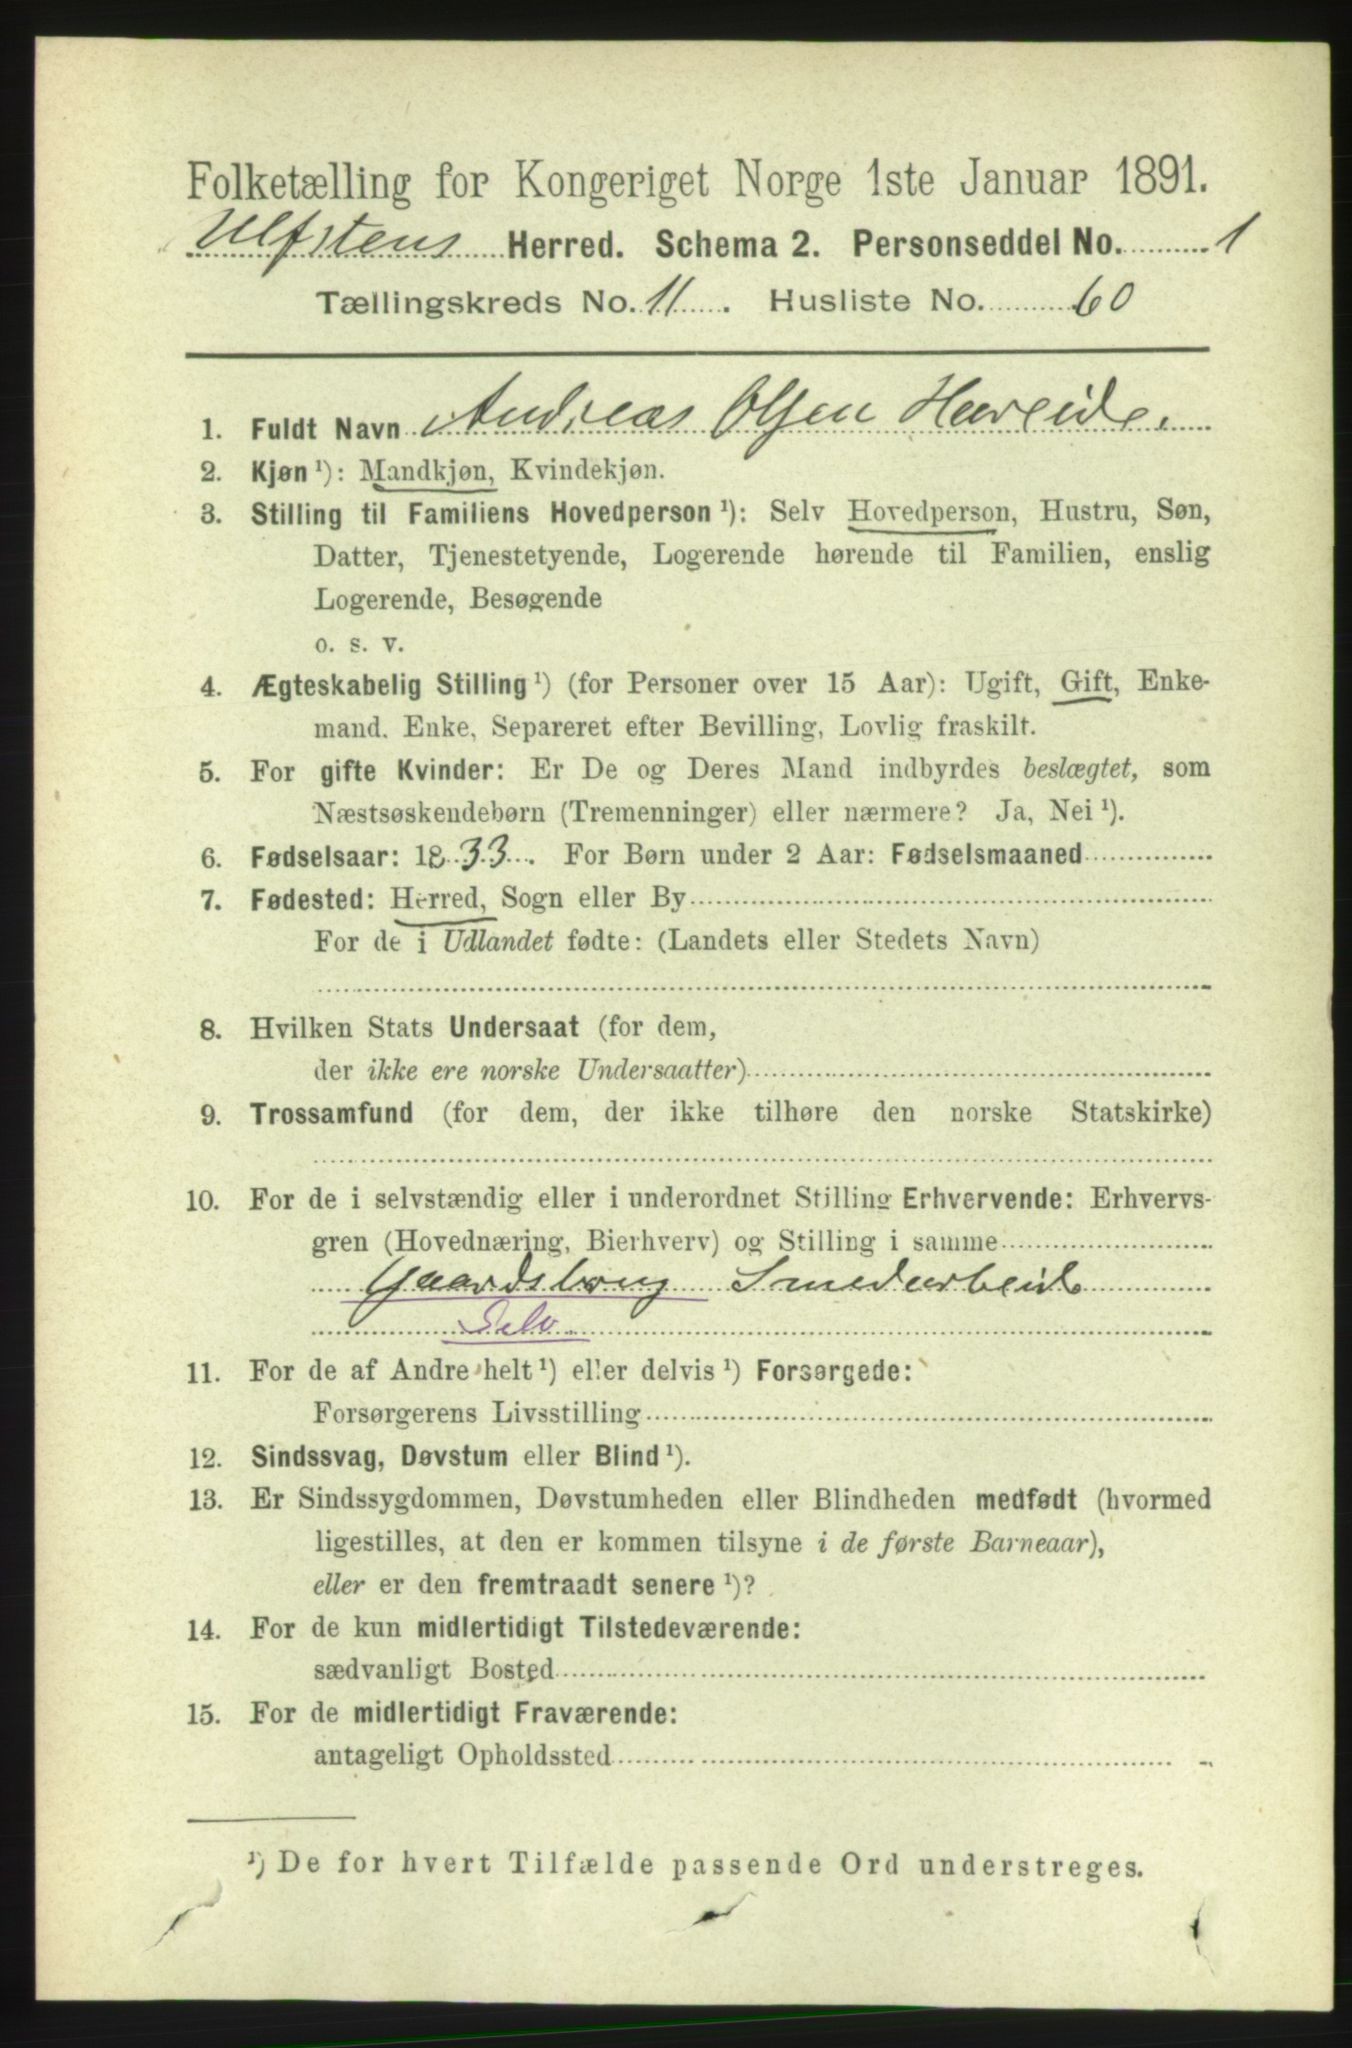 Folketælling for Kongeriget Norge 1ste Januar 1891.
Ulfstens Herred. Schema 2. Personseddel No. 1
Tællingskreds No. 11. Husliste No. 60
1. Fuldt Navn Andreas Olsen Hareide.
2. Kjøn ¹): Mandkjøn, Kvindekjøn.
3. Stilling til Familiens Hovedperson ¹): Selv Hovedperson, Hustru, Søn,
Datter, Tjenestetyende, Logerende hørende til Familien, enslig
Logerende, Besøgende
o. s. v.
4. Ægteskabelig Stilling ¹) (for Personer over 15 Aar): Ugift, Gift, Enke-
mand, Enke, Separeret efter Bevilling, Lovlig fraskilt.
5. For gifte Kvinder: Er De og Deres Mand indbyrdes beslægtet, som
Næstsøskendebørn (Tremenninger) eller nærmere? Ja, Nei ¹).
6. Fødselsaar: 1833. For Børn under 2 Aar: Fødselsmaaned
7. Fødested: Herred, Sogn eller By
For de i Udlandet fødte: (Landets eller Stedets Navn)
8. Hvilken Stats Undersaat (for dem,
der ikke ere norske Undersaatter)
9. Trossamfund (for dem, der ikke tilhøre den norske Statskirke)
10. For de i selvstændig eller i underordnet Stilling Erhvervende: Erhvervs-
gren (Hovednæring, Bierhverv) og Stilling i samme
Gaardsbrug Smedarbeide
Selv
11. For de af Andre helt ¹) eller delvis ¹) Forsørgede:
Forsørgerens Livsstilling
12. Sindssvag, Døvstum eller Blind ¹).
13. Er Sindssygdommen, Døvstumheden eller Blindheden medfødt (hvormed
ligestilles, at den er kommen tilsyne i de første Barneaar),
eller er den fremtraadt senere ¹)?
14. For de kun midlertidigt Tilstedeværende:
sædvanligt Bosted
15. For de midlertidigt Fraværende:
antageligt Opholdssted
¹) De for hvert Tilfælde passende Ord understreges.